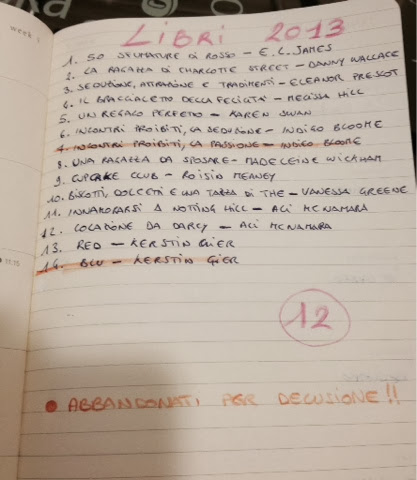 week 1
LIBRI 2013
1. 50 SFUMATURE DI ROSSO - E.L. JAMES
2. LA RAGAZZA DI CHARLOTTE STREET - DANNY WALLACE
3. SEDUZIONE, ATTRAZIONE E TRADIMENTI - ELEANOR PRESCOT
4. IL BRACCIALETTO DELLA FELICITÀ - MELISSA HILL
5. UN REGALO PERFETTO - KAREN SWAN
6. INCONTRI PROIBITI, LA SEDUZIONE - INDIGO BLOOME
7. INCONTRI PROIBITI, LA PASSIONE - INDIGO BLOOME
8. UNA RAGAZZA DA SPOSARE - MADELEINE WICKHAM
9. CUPCAKE CLUB - ROISIN MEANEY
10. BISCOTTI, DOLCETTI E UNA TAZZA DI THE - VANESSA GREENE
11. INNAMORARSI A NOTTING HILL - ALI MCNAMARA
12. COLAZIONE DA DARCY - ALI MCNAMARA
13. RED - KERSTIN GIER
14. BLU - KERSTIN GIER
12
ABBANDONATI PER DELUSIONE!!